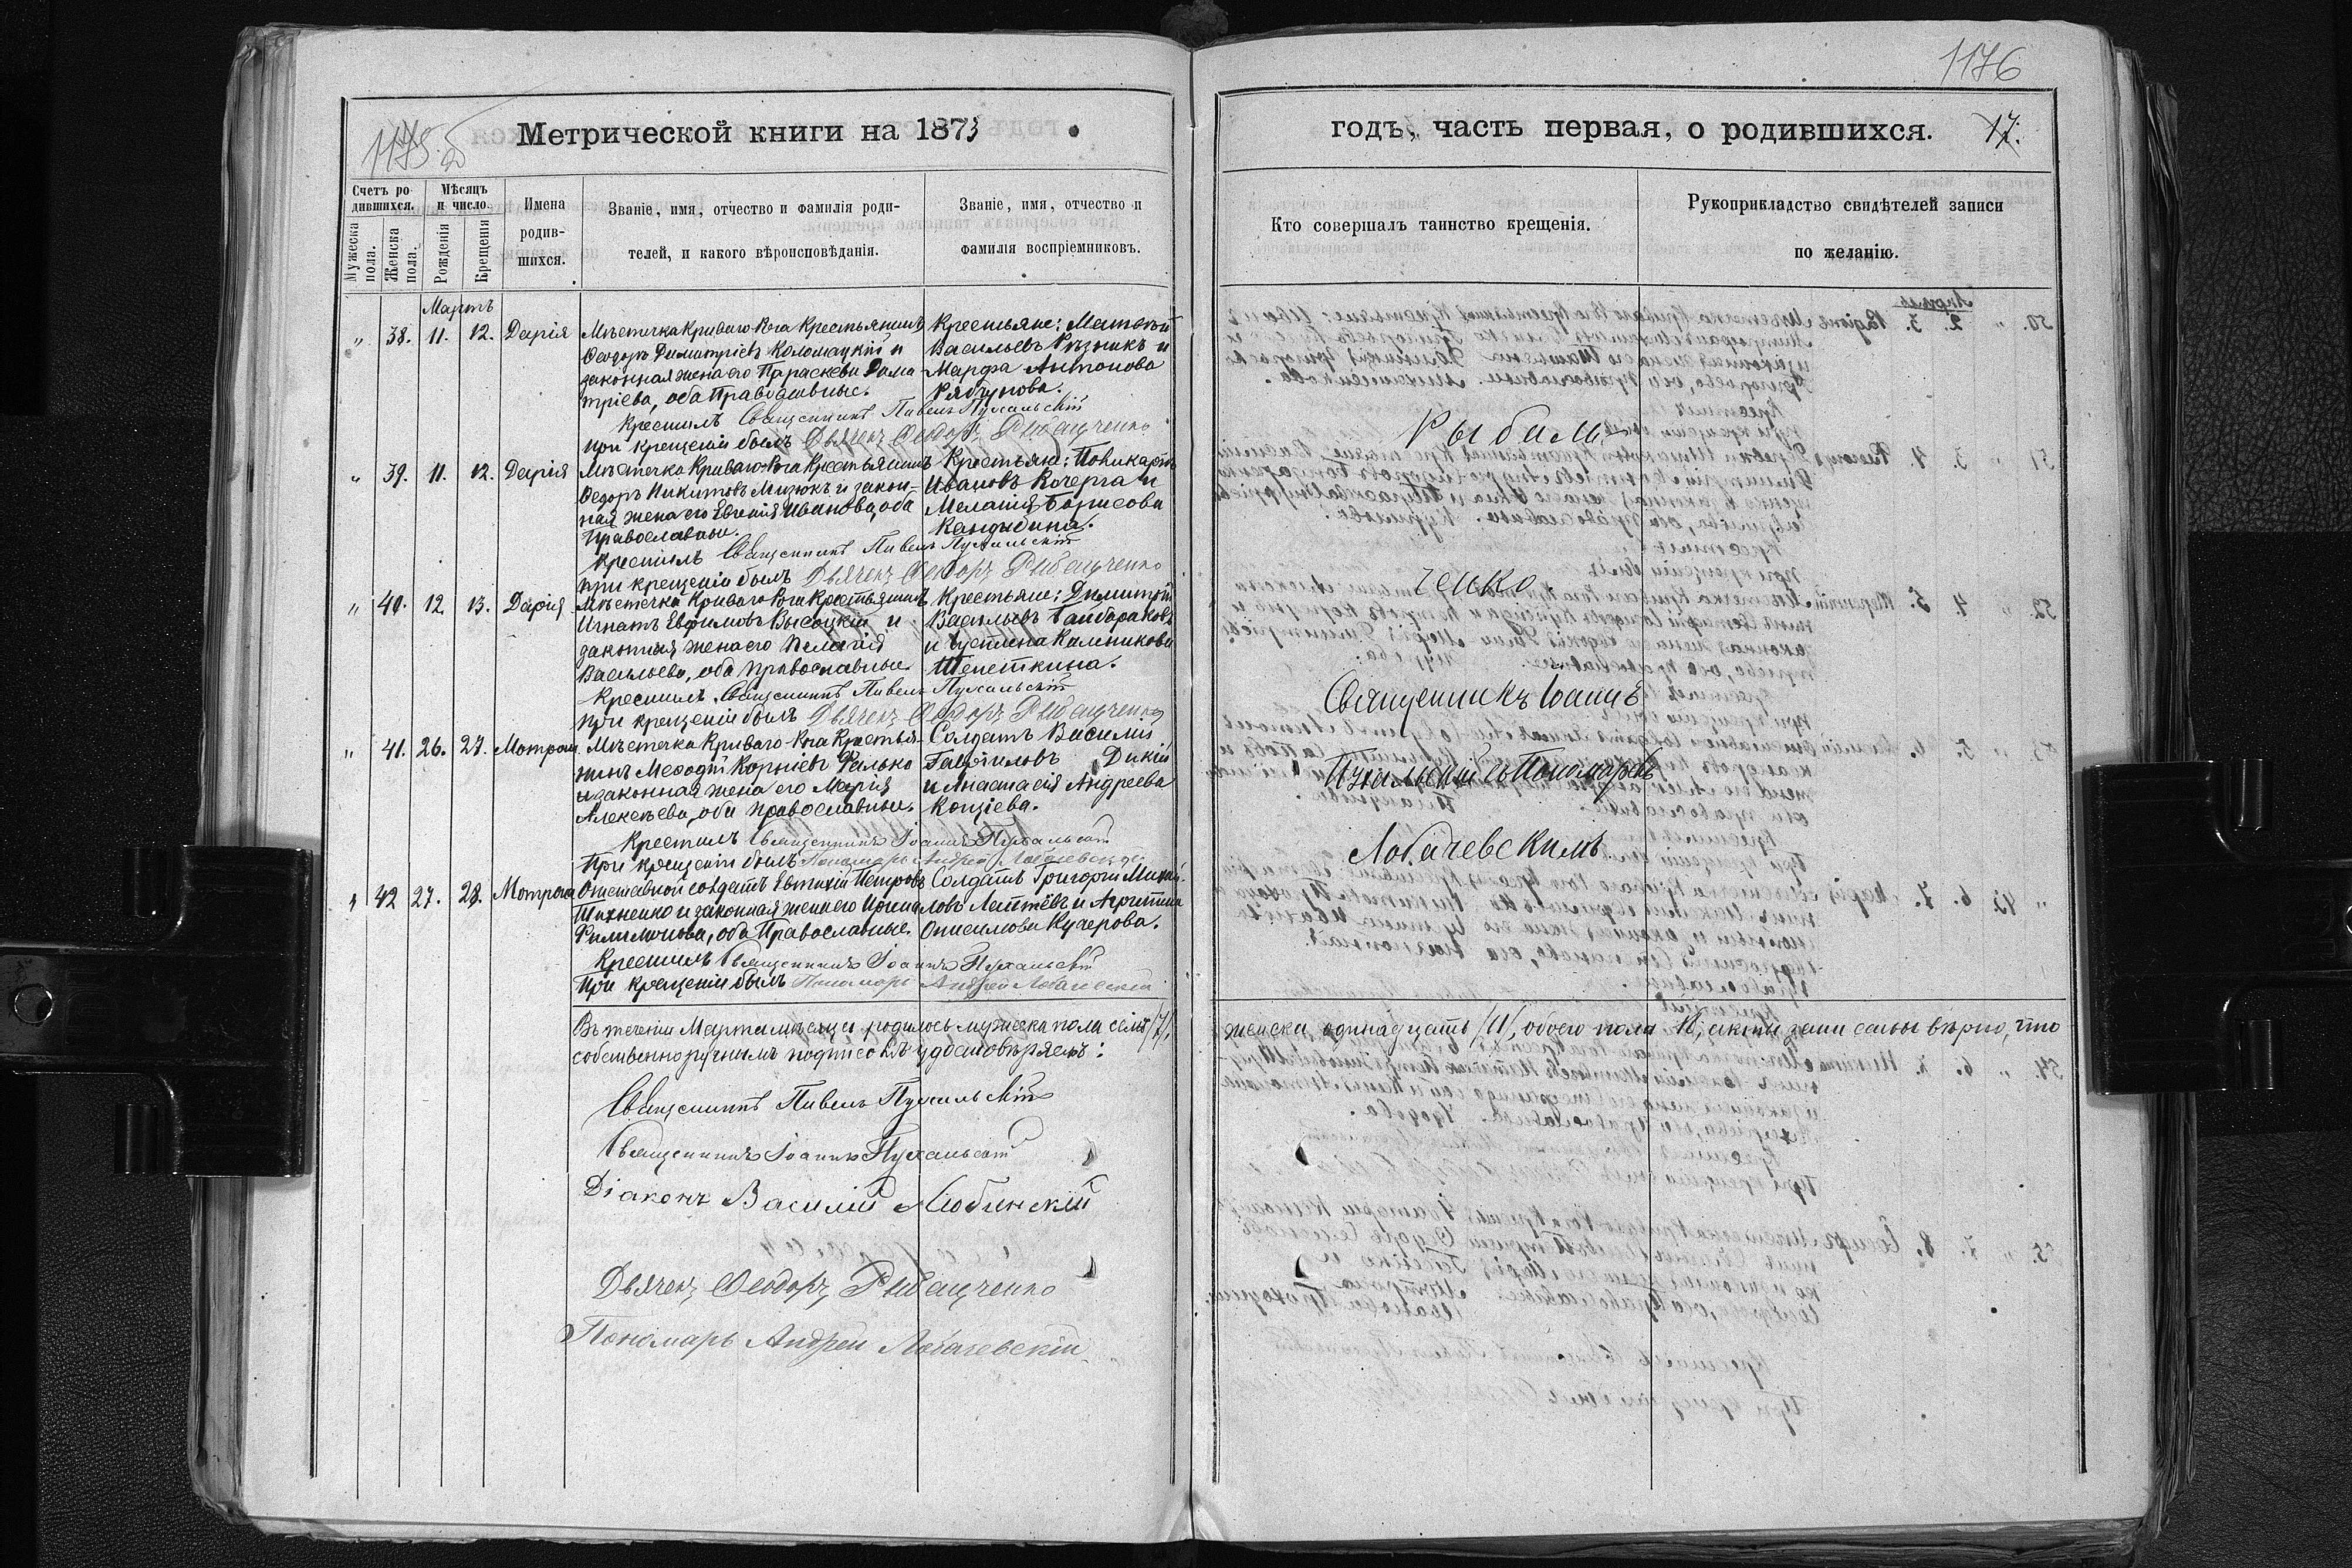 1176
1175 б
Метрической книги на 1873
годъ, часть первая, о родившихся.
17.
Счетъ родившихся.
Мужеска пола.
Женска пола.
Мѣсяцъ и число.
Рожденія
Крещенія
Имена родившихся.
Званіе, имя, отчество и фамилія родителей, и какого вѣроисповѣданія.
Званіе, имя, отчество и фамилія воспріемниковъ.
Кто совершалъ таинство крещенія.
Рукоприкладство свидѣтелей записи по желанію.
Мартъ
„ 38. 11. 12. Дарія
Мѣстечка Криваго-Рога Крестьянинъ
Ѳеодоръ Димитріевъ Коломацкій и
законная жена его Параскева Дими
тріева, оба Православные.
Крестьяне:
Васильевъ Рѣзникъ и
Марфа Антонова
Рябчукова.
Крестилъ Священникъ Павелъ Пухальскій
при крещеніи былъ Дьячекъ Ѳеодоръ Рыбальченко
„ 39. 11. 12. Дарія
Мѣстечка Криваго-Рога Крестьянинъ
Ѳедоръ Никитовъ Мизюкъ и закон-
ная жена его Евгенія Иванова, оба
Православные.
Крестьяне: Поликарпъ
Ивановъ Кочерга и
Меланія Борисова
Кандыбина.
Крестилъ Священникъ Павелъ Пухальскій
при крещеніи былъ Дьячекъ Ѳеодоръ Рыбальченко
„ 40. 12. 13. Дарія
Мѣстечка Криваго Рога Крестьянинъ
Игнатъ Евфимовъ Высоцкій и
законная жена его Пелагія
Васильева, оба православные.
Крестьяне: Димитрій
Васильевъ Байбараковъ
и Устина Калникова
Шелеткина.
Крестилъ Священникъ Павелъ Пухальскій
при крещеніи былъ Дьячекъ Ѳеодоръ Рыбальченко
„ 41. 26. 27. Мотрона
Мѣстечка Криваго-Рога Крестья-
нинъ Меѳодій Корніевъ Галько
и законная жена его Марія
Алексѣева, оба православные.
Солдатъ Василій
Гавриловъ Дикій
и Анастасія Андреева
Копціева.
Крестилъ Священникъ Іоаннъ Пухальскій
При крещеніи былъ Пономарь Андрей Лобачевскій
„ 42 27. 28. Мотрона
Отставной солдатъ Евтихій Петровъ
Тихненко и законная жена его Ирина
Филимонова, оба Православные.
Солдатъ Григорій Михай-
ловъ Лаптевъ и Агриппина
Онисимова Кучерова.
Крестилъ Священникъ Іоаннъ Пухальскій
При крещеніи былъ Пономарь Андрей Лобачевскій
Въ теченіи Марта мѣсяца родилось мужеска пола семь /7/,
женска одинадцать /11/, обоего пола 18, акты записаны вѣрно, что
собственноручнымъ подписомъ удостовѣряемъ:
Священникъ Павелъ Пухальскій
Священникъ Іоаннъ Пухальскій
Діаконъ Василій Любинскій
Дьячекъ Ѳеодоръ Рыбальченко
Пономарь Андрей Лобачевскій
Рыбаль
ченко
Священникъ Іоаннъ
Пухальскій съ Пономаремъ
Лобачевскимъ